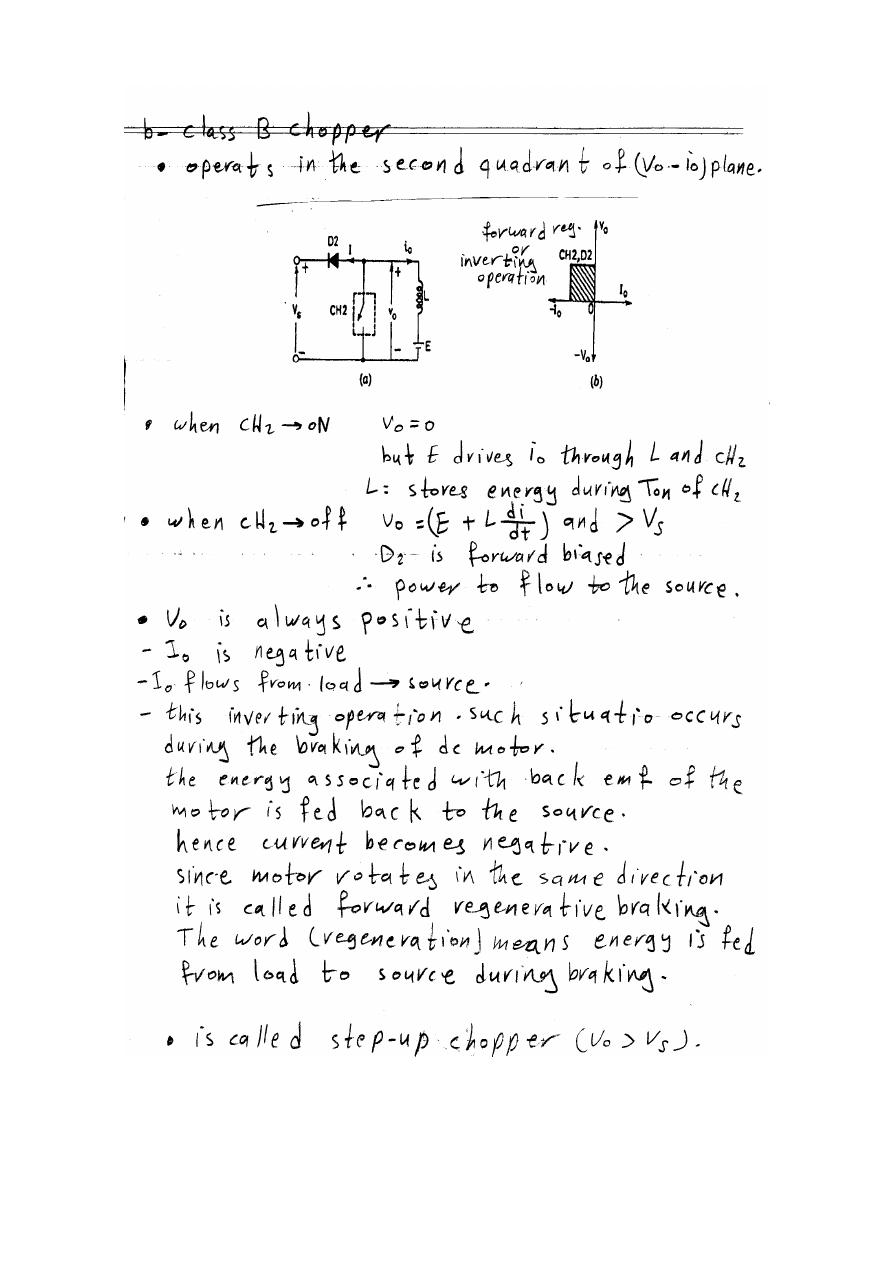 b- class B chopper
• operats in the second quadrant of (Vo - io) plane.
forward reg.
or
inverting
operation
D2
I
io
+
+
Vs
CH2
Vo
L
-
-
E
(a)
Vo
CH2,D2
Io
-io
0
-Vo
(b)
• when CH2 → oN Vo = o
but E drives io through L and CH2
L: stores energy during Ton of CH2
• when CH2 → off Vo = (E + L di/dt) and > Vs
D2 is forward biased
∴ power to flow to the source.
• Vo is always positive
- Io is negative
- Io flows from load → source.
- this inverting operation . such situatio occurs
during the braking of dc motor.
the energy associated with back emf of the
motor is fed back to the source.
hence current becomes negative.
since motor rotates in the same direction
it is called forward regenerative braking.
The word (regeneration) means energy is fed
from load to source during braking.
• is called step-up chopper (Vo > Vs).